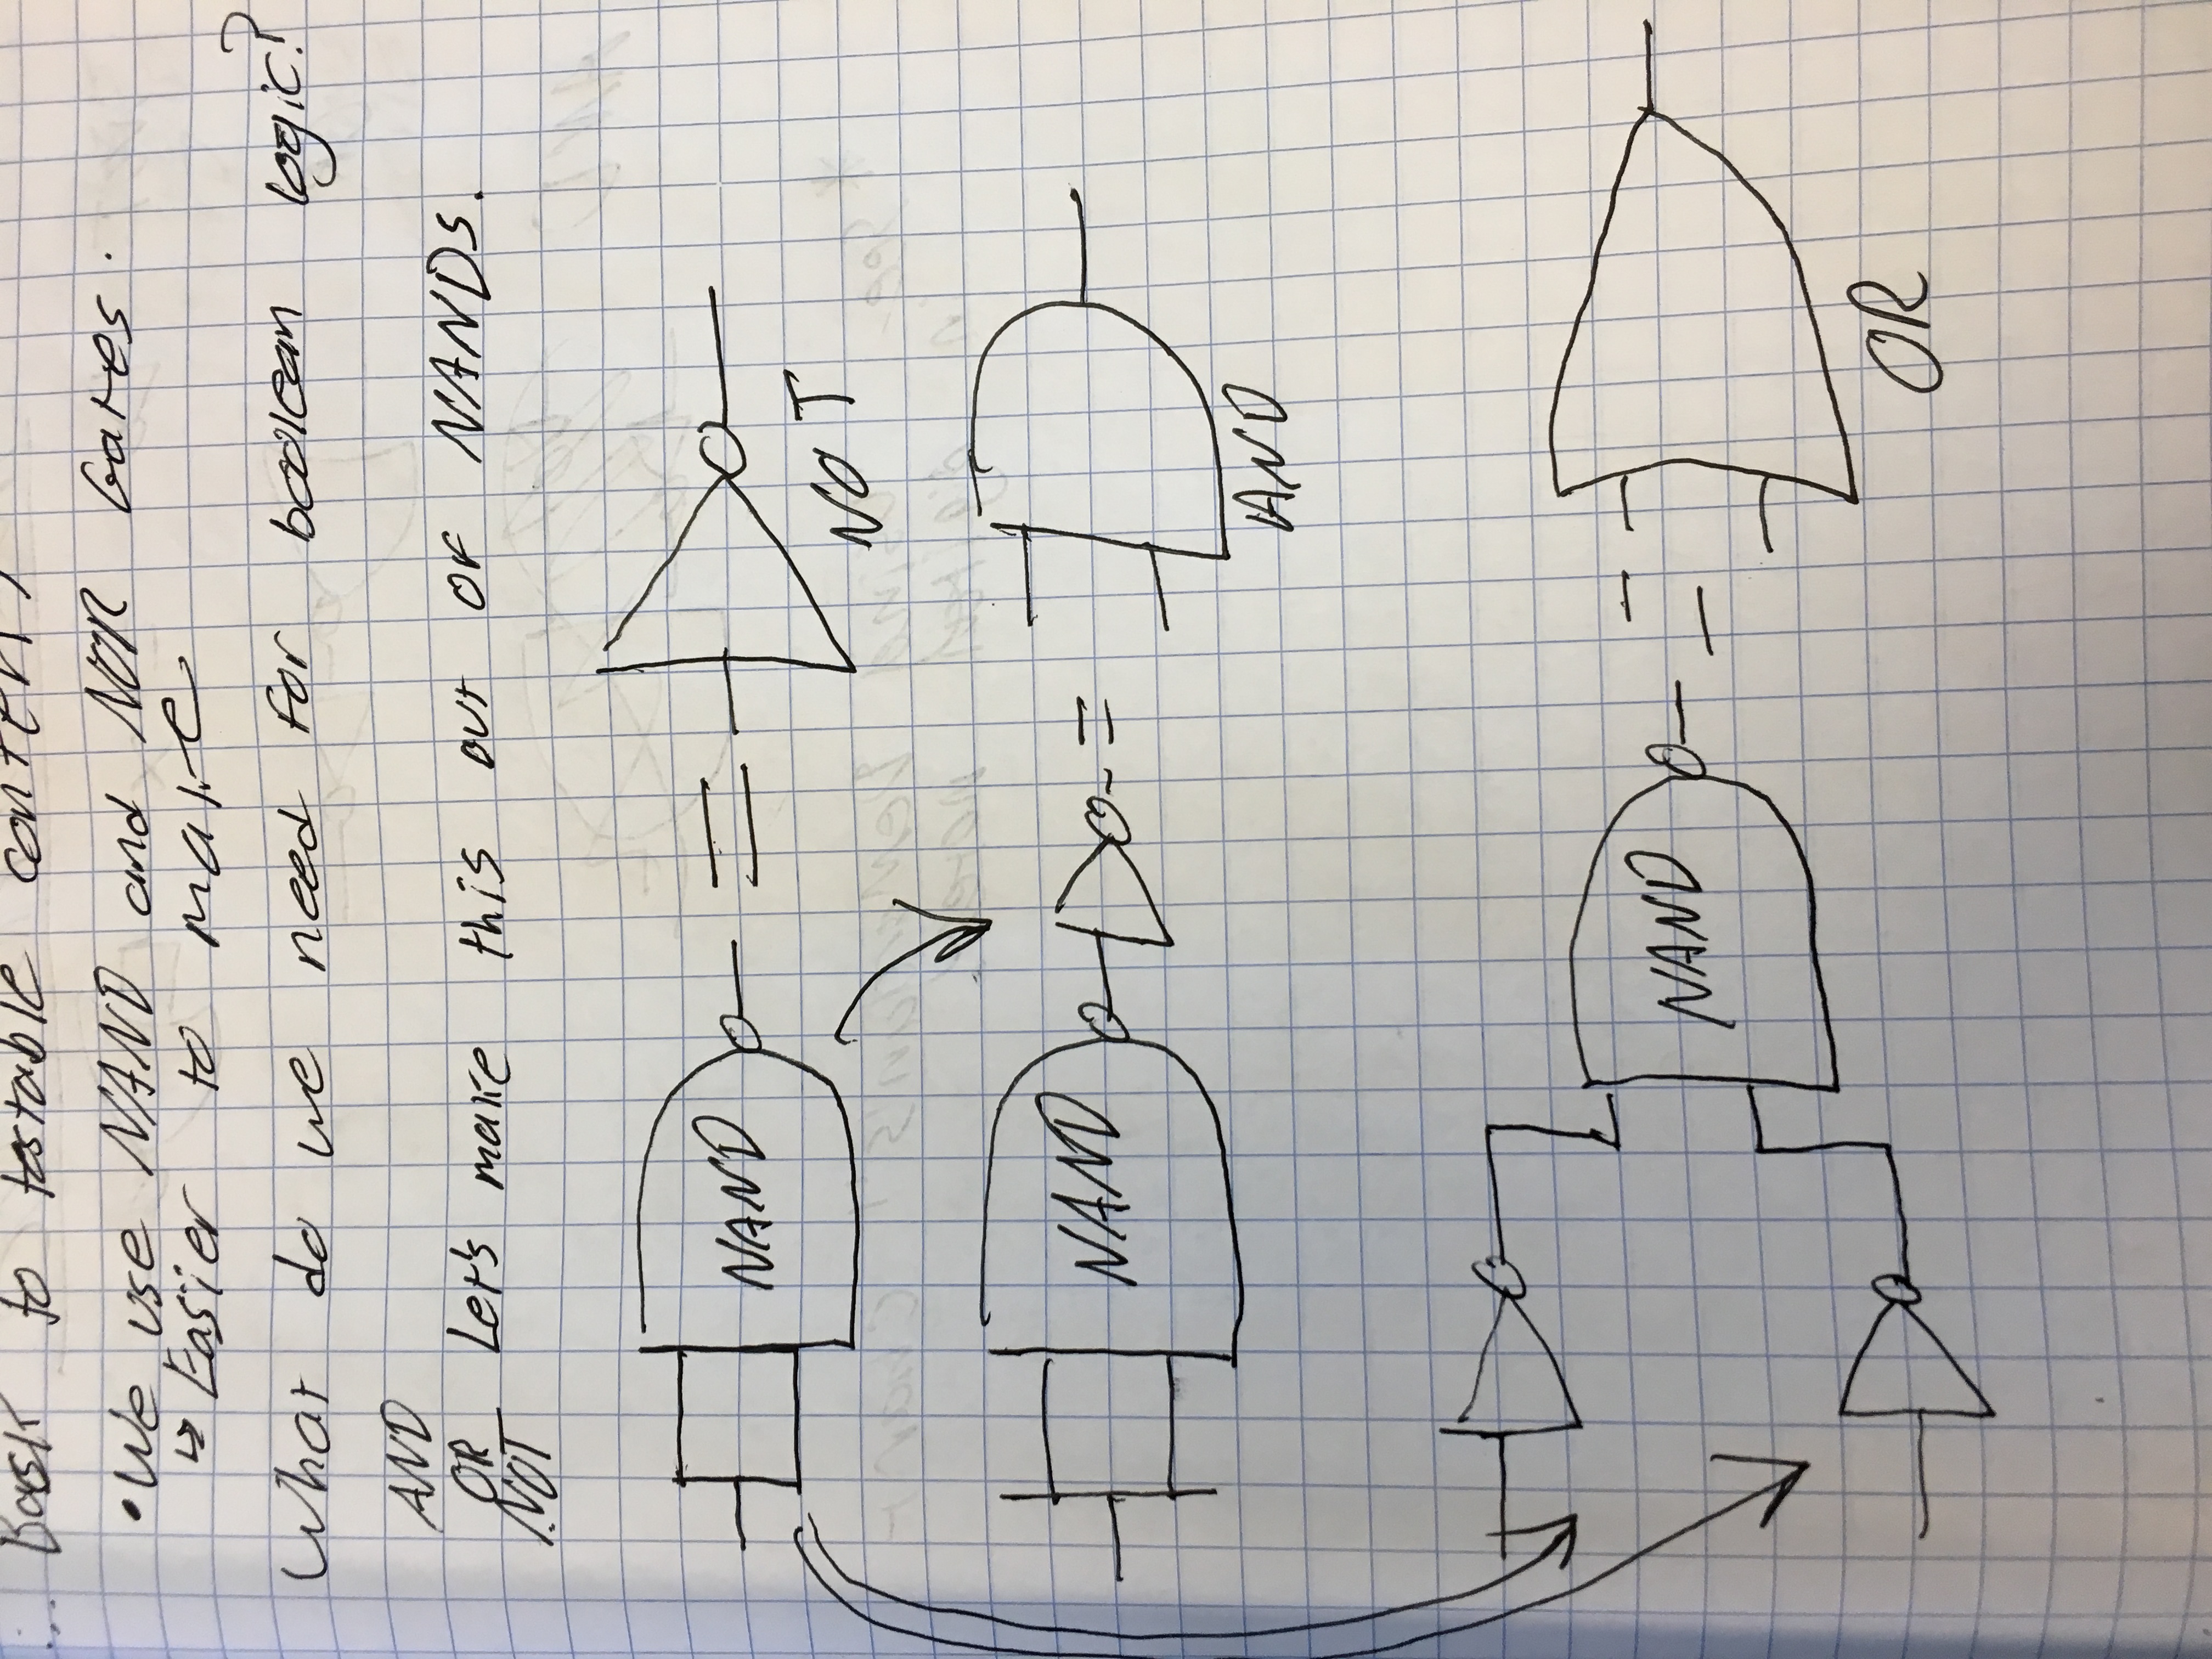 ... Back to testable content
• We use NAND and NOR Gates.
↳ Easier to make
What do we need for boolean logic?
AND
OR Let's make this out of NANDs.
NOT
NAND =
NOT
NAND =
AND
NAND =
OR